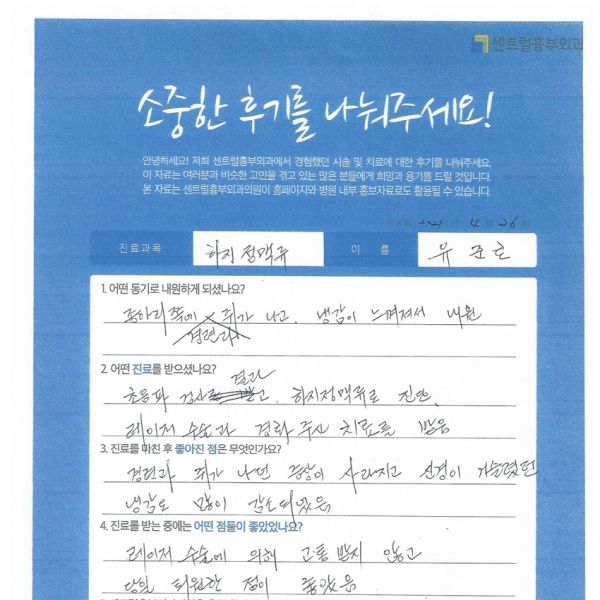 센트럴흉부외과
소중한 후기를 나눠주세요!
안녕하세요! 저희 센트럴흉부외과에서 경험했던 시술 및 치료에 대한 후기를 나눠주세요.
이 자료는 여러분과 비슷한 고민을 겪고 있는 많은 분들에게 희망과 용기를 드릴 것입니다.
본 자료는 센트럴흉부외과의원이 홈페이지와 병원 내부 홍보자료로도 활용될 수 있습니다.
4 26
진료과목 하지정맥류 이 름 유준근
1. 어떤 동기로 내원하게 되셨나요?
종아리 쪽에 쥐가 나고. 냉감이 느껴져서 내원
경련과
2. 어떤 진료를 받으셨나요?
결과
초음파 검사 하지정맥류로 진단.
레이저 수술과 경화 주사 치료를 받음
3. 진료를 마친 후 좋아진 점은 무엇인가요?
경련과 쥐가 나던 증상이 사라지고 신경이 거슬렸던
냉감도 많이 감소되었음
4. 진료를 받는 중에는 어떤 점들이 좋았었나요?
레이저 수술에 의해 고통 받지 않고
당일 퇴원한 점이 좋았음